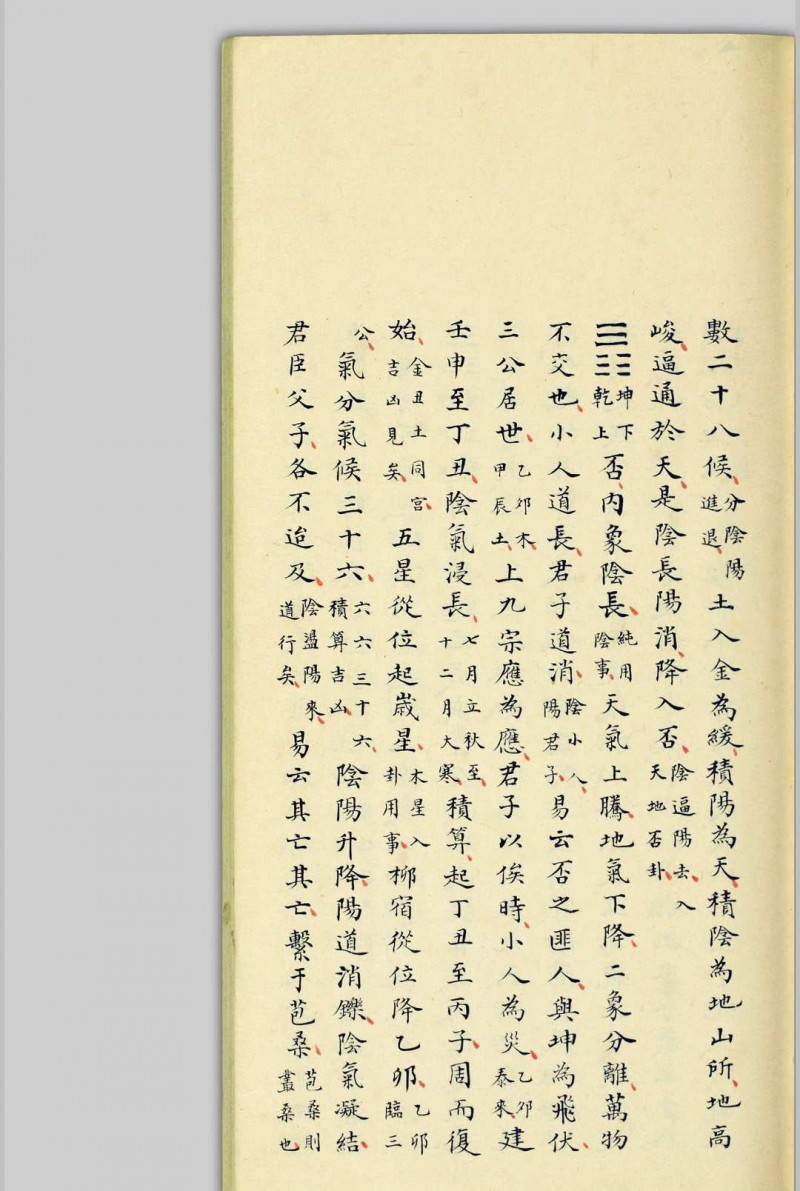 數二十八候分陰陽進退土入金為緩積陽為天積陰為地山所地高
峻逼通於天是陰長陽消降入否陰逼陽去入天地否卦
䷋坤下乾上否內象陰長純用陰事天氣上騰地氣下降二象分離萬物
不交也小人道長君子道消陰小人陽君子易云否之匪人與坤為飛伏
三公居世乙卯木甲辰土上九宗應為應君子以俟時小人為災乙卯泰來建
壬申至丁丑陰氣浸長七月立秋至十二月大寒積算起丁丑至丙子周而復
始金丑土同宮吉凶見矣五星從位起歲星木星入卦用事柳宿從位降乙卯乙卯臨三
公氣分氣候三十六六六三十六積算吉凶陰陽升降陽道消鑠陰氣凝結
君臣父子各不迨及陰盪陽來道行矣易云其亡其亡繫于苞桑苞桑則叢桑也